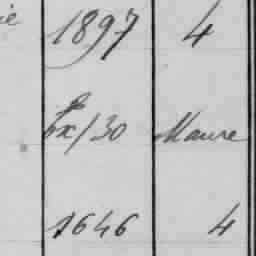 ie 1897 4
bx/30 Maure
1646 4